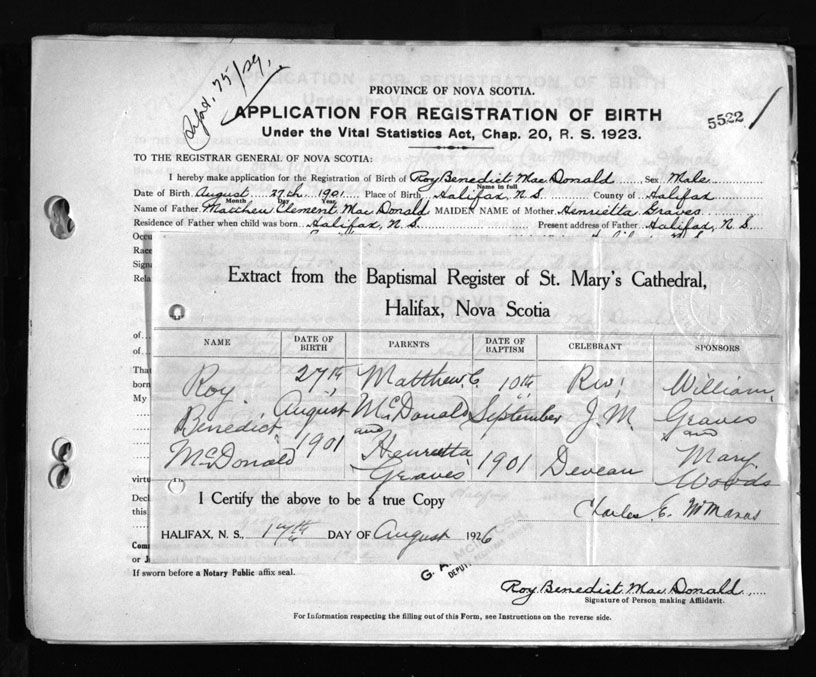 PROVINCE OF NOVA SCOTIA.
APPLICATION FOR REGISTRATION OF BIRTH
5522
Under the Vital Statistics Act, Chap. 20, R. S. 1923.
TO THE REGISTRAR GENERAL OF NOVA SCOTIA:
I hereby make application for the Registration of Birth of Roy Benedict Mac Donald Sex Male
Name in full
Date of Birth August 27th 1901 Place of Birth Halifax, N. S. County of Halifax
Month Day Year
Name of Father Matthew Clement Mac Donald MAIDEN NAME of Mother Henrietta Graves
Residence of Father when child was born Halifax, N. S. Present address of Father Halifax, N. S.
Occu
Race
Signa
Rela
Extract from the Baptismal Register of St. Mary's Cathedral,
Halifax, Nova Scotia
of
of
That
born
My
NAME DATE OF BIRTH PARENTS DATE OF BAPTISM CELEBRANT SPONSORS
Roy 27th Matthew C. 10th Rev. William
Benedict August McDonald September J. M. Graves
and and
McDonald 1901 Henrietta 1901 Deveau Mary
Graves Woods
virtu
I Certify the above to be a true Copy
Decl
this
Charles E. McManus
HALIFAX, N. S., 17th DAY OF August 1926
Com
or J
If sworn before a Notary Public affix seal.
Roy Benedict Mac Donald
Signature of Person making Affidavit.
For Information respecting the filling out of this Form, see Instructions on the reverse side.